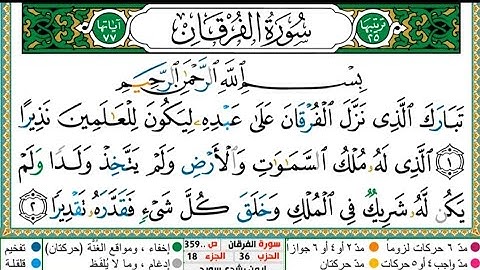 ترتيبها ٢٥ سُورَةُ الفُرْقَان آياتها ٧٧
بِسْمِ اللَّهِ الرَّحْمَٰنِ الرَّحِيمِ
تَبَارَكَ الَّذِي نَزَّلَ الْفُرْقَانَ عَلَىٰ عَبْدِهِ لِيَكُونَ لِلْعَالَمِينَ نَذِيرًا
﴿١﴾ الَّذِي لَهُ مُلْكُ السَّمَاوَاتِ وَالْأَرْضِ وَلَمْ يَتَّخِذْ وَلَدًا وَلَمْ
يَكُن لَّهُ شَرِيكٌ فِي الْمُلْكِ وَخَلَقَ كُلَّ شَيْءٍ فَقَدَّرَهُ تَقْدِيرًا ﴿٢﴾
مدّ ٦ حركات لزوما مدّ ٢ أو ٤ أو ٦ جوازا سورة الفرقان ص ..359 إخفاء ، ومواقع الغُنَّة (حركتان) تفخيم
مدّ واجب ٤ أو ٥ حركات مدّ حركتان الحزب 36 الجزء 18 إدغام ، وما لا يُلفَظ قلقلة